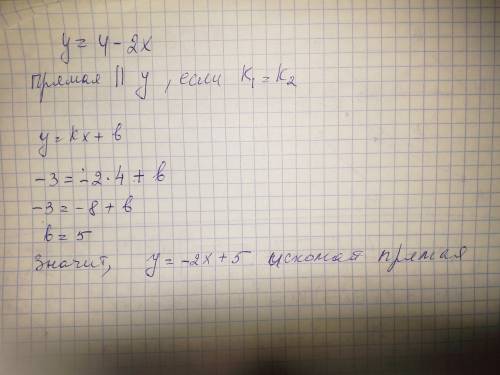 y = 4 - 2x
Прямая || y, если K₁ = K₂
y = kx + b
-3 = -2 · 4 + b
-3 = -8 + b
b = 5
Значит, y = -2x + 5 искомая прямая